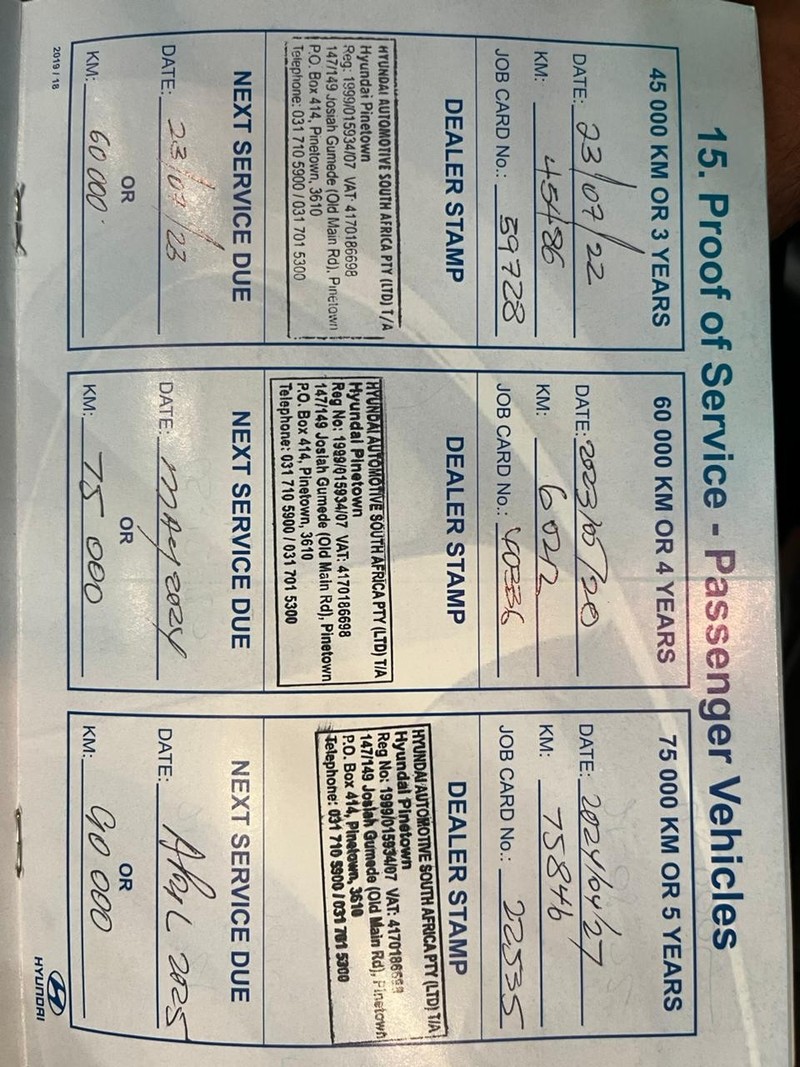 15. Proof of Service - Passenger Vehicles
45 000 KM OR 3 YEARS
DATE: 23/07/22
KM: 45486
JOB CARD No.: 39728
DEALER STAMP
HYUNDAI AUTOMOTIVE SOUTH AFRICA PTY (LTD) T/A
Hyundai Pinetown
Reg: 1999/015934/07 VAT: 4170186698
147/149 Josiah Gumede (Old Main Rd), Pinetown
P.O. Box 414, Pinetown, 3610
Telephone: 031 710 5900 / 031 701 5300
NEXT SERVICE DUE
DATE: 23/07/23
OR
KM: 60 000
2019 / 18
60 000 KM OR 4 YEARS
DATE: 2023/05/20
KM:
JOB CARD No.: 40336
DEALER STAMP
HYUNDAI AUTOMOTIVE SOUTH AFRICA PTY (LTD) T/A
Hyundai Pinetown
Reg No: 1999/015934/07 VAT: 4170186698
147/149 Josiah Gumede (Old Main Rd), Pinetown
P.O. Box 414, Pinetown, 3610
Telephone: 031 710 5900 / 031 701 5300
NEXT SERVICE DUE
DATE: MAY 2024
OR
KM: 75 000
75 000 KM OR 5 YEARS
DATE: 2024/04/27
KM: 75846
JOB CARD No.: 22535
DEALER STAMP
HYUNDAI AUTOMOTIVE SOUTH AFRICA PTY (LTD) T/A
Hyundai Pinetown
Reg No: 1999/015934/07 VAT: 4170186698
147/149 Josiah Gumede (Old Main Rd), Pinetown
P.O. Box 414, Pinetown, 3610
Telephone: 031 710 5900 / 031 701 5300
NEXT SERVICE DUE
DATE: April 2025
OR
KM: 90 000
HYUNDAI